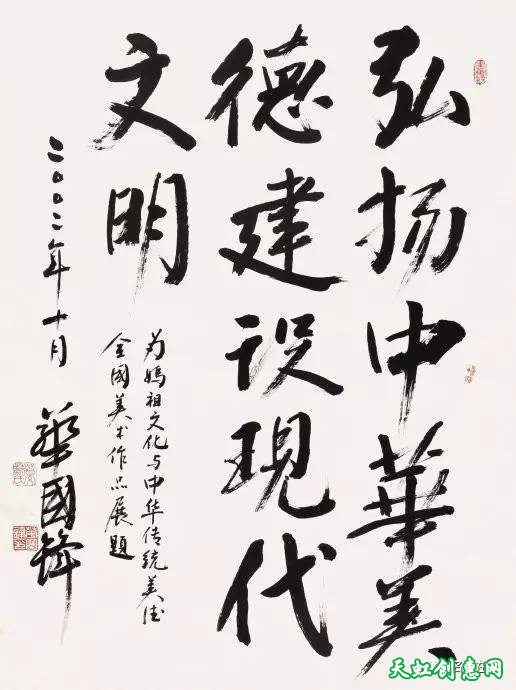 弘扬中華美
德建设現代
文明
为媽祖文化与中华传统美德
全國美术作品展題
二〇〇二年十月
華國鋒
天虹创意网